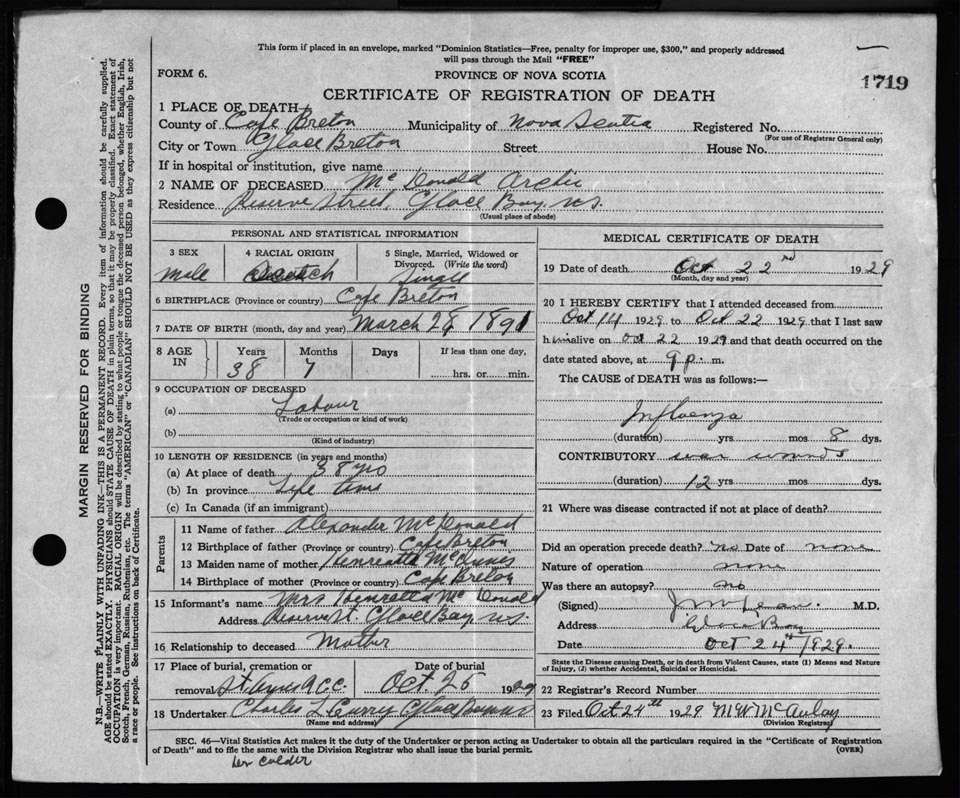 This form if placed in an envelope, marked "Dominion Statistics—Free, penalty for improper use, $300," and properly addressed
will pass through the Mail "FREE"
FORM 6.
PROVINCE OF NOVA SCOTIA
1719
CERTIFICATE OF REGISTRATION OF DEATH
1 PLACE OF DEATH—
County of Cape Breton Municipality of Nova Scotia Registered No.
(For use of Registrar General only)
City or Town Glace Breton Street House No.
If in hospital or institution, give name
2 NAME OF DECEASED Mc Donald Archie
Residence Reserve Street, Glace Bay, N.S.
(Usual place of abode)
PERSONAL AND STATISTICAL INFORMATION
3 SEX
4 RACIAL ORIGIN
5 Single, Married, Widowed or
Divorced. (Write the word)
male Scotch Single
6 BIRTHPLACE (Province or country) Cape Breton
7 DATE OF BIRTH (month, day and year) March 28 1891
8 AGE
IN
Years
Months
Days
If less than one day,
38 7
hrs. or min.
9 OCCUPATION OF DECEASED
(a) Labour
(Trade or occupation or kind of work)
(b)
(Kind of industry)
10 LENGTH OF RESIDENCE (in years and months)
(a) At place of death 38 yrs
(b) In province Life time
(c) In Canada (if an immigrant)
Parents
11 Name of father Alexander McDonald
12 Birthplace of father (Province or country) Cape Breton
13 Maiden name of mother Henreatta McInnis
14 Birthplace of mother (Province or country) Cape Breton
15 Informant's name Mrs Henretta Mc Donald
Address Reserve St. Glace Bay, N.S.
16 Relationship to deceased Mother
17 Place of burial, cremation or
removal St. C.C.
Date of burial
Oct. 25 1929
18 Undertaker Charles L Curry Glace Bay NS
(Name and address)
MEDICAL CERTIFICATE OF DEATH
19 Date of death Oct 22nd 1929
(Month, day and year)
20 I HEREBY CERTIFY that I attended deceased from
Oct 14 1929 to Oct 22 1929 that I last saw
him alive on Oct 22 1929 and that death occurred on the
date stated above, at 9 p. m.
The CAUSE of DEATH was as follows:—
Influenza
(duration) yrs mos 8 dys.
CONTRIBUTORY war wounds
(duration) 12 yrs mos dys.
21 Where was disease contracted if not at place of death?
Did an operation precede death? no Date of none
Nature of operation none
Was there an autopsy? no
(Signed) M.D.
Address Glace Bay
Date Oct 24th 1929.
State the Disease causing Death, or in death from Violent Causes, state (1) Means and Nature
of Injury, (2) whether Accidental, Suicidal or Homicidal.
22 Registrar's Record Number
23 Filed Oct 24th 1929 M W McAulay
(Division Registrar)
SEC. 46—Vital Statistics Act makes it the duty of the Undertaker or person acting as Undertaker to obtain all the particulars required in the "Certificate of Registration
of Death" and to file the same with the Division Registrar who shall issue the burial permit.
(OVER)
MARGIN RESERVED FOR BINDING
N.B.—WRITE PLAINLY WITH UNFADING INK—THIS IS A PERMANENT RECORD. Every item of information should be carefully supplied.
AGE should be stated EXACTLY. PHYSICIANS should STATE CAUSE OF DEATH in plain terms, so that it may be properly classified. Exact statement of
OCCUPATION is very important. RACIAL ORIGIN will be described by stating to what people or tongue the deceased person belonged, whether English, Irish,
Scotch, French, German, Russian, Ruthenian, etc. The terms "AMERICAN" or "CANADIAN" SHOULD NOT BE USED as they express citizenship but not
a race or people. See instructions on back of Certificate.